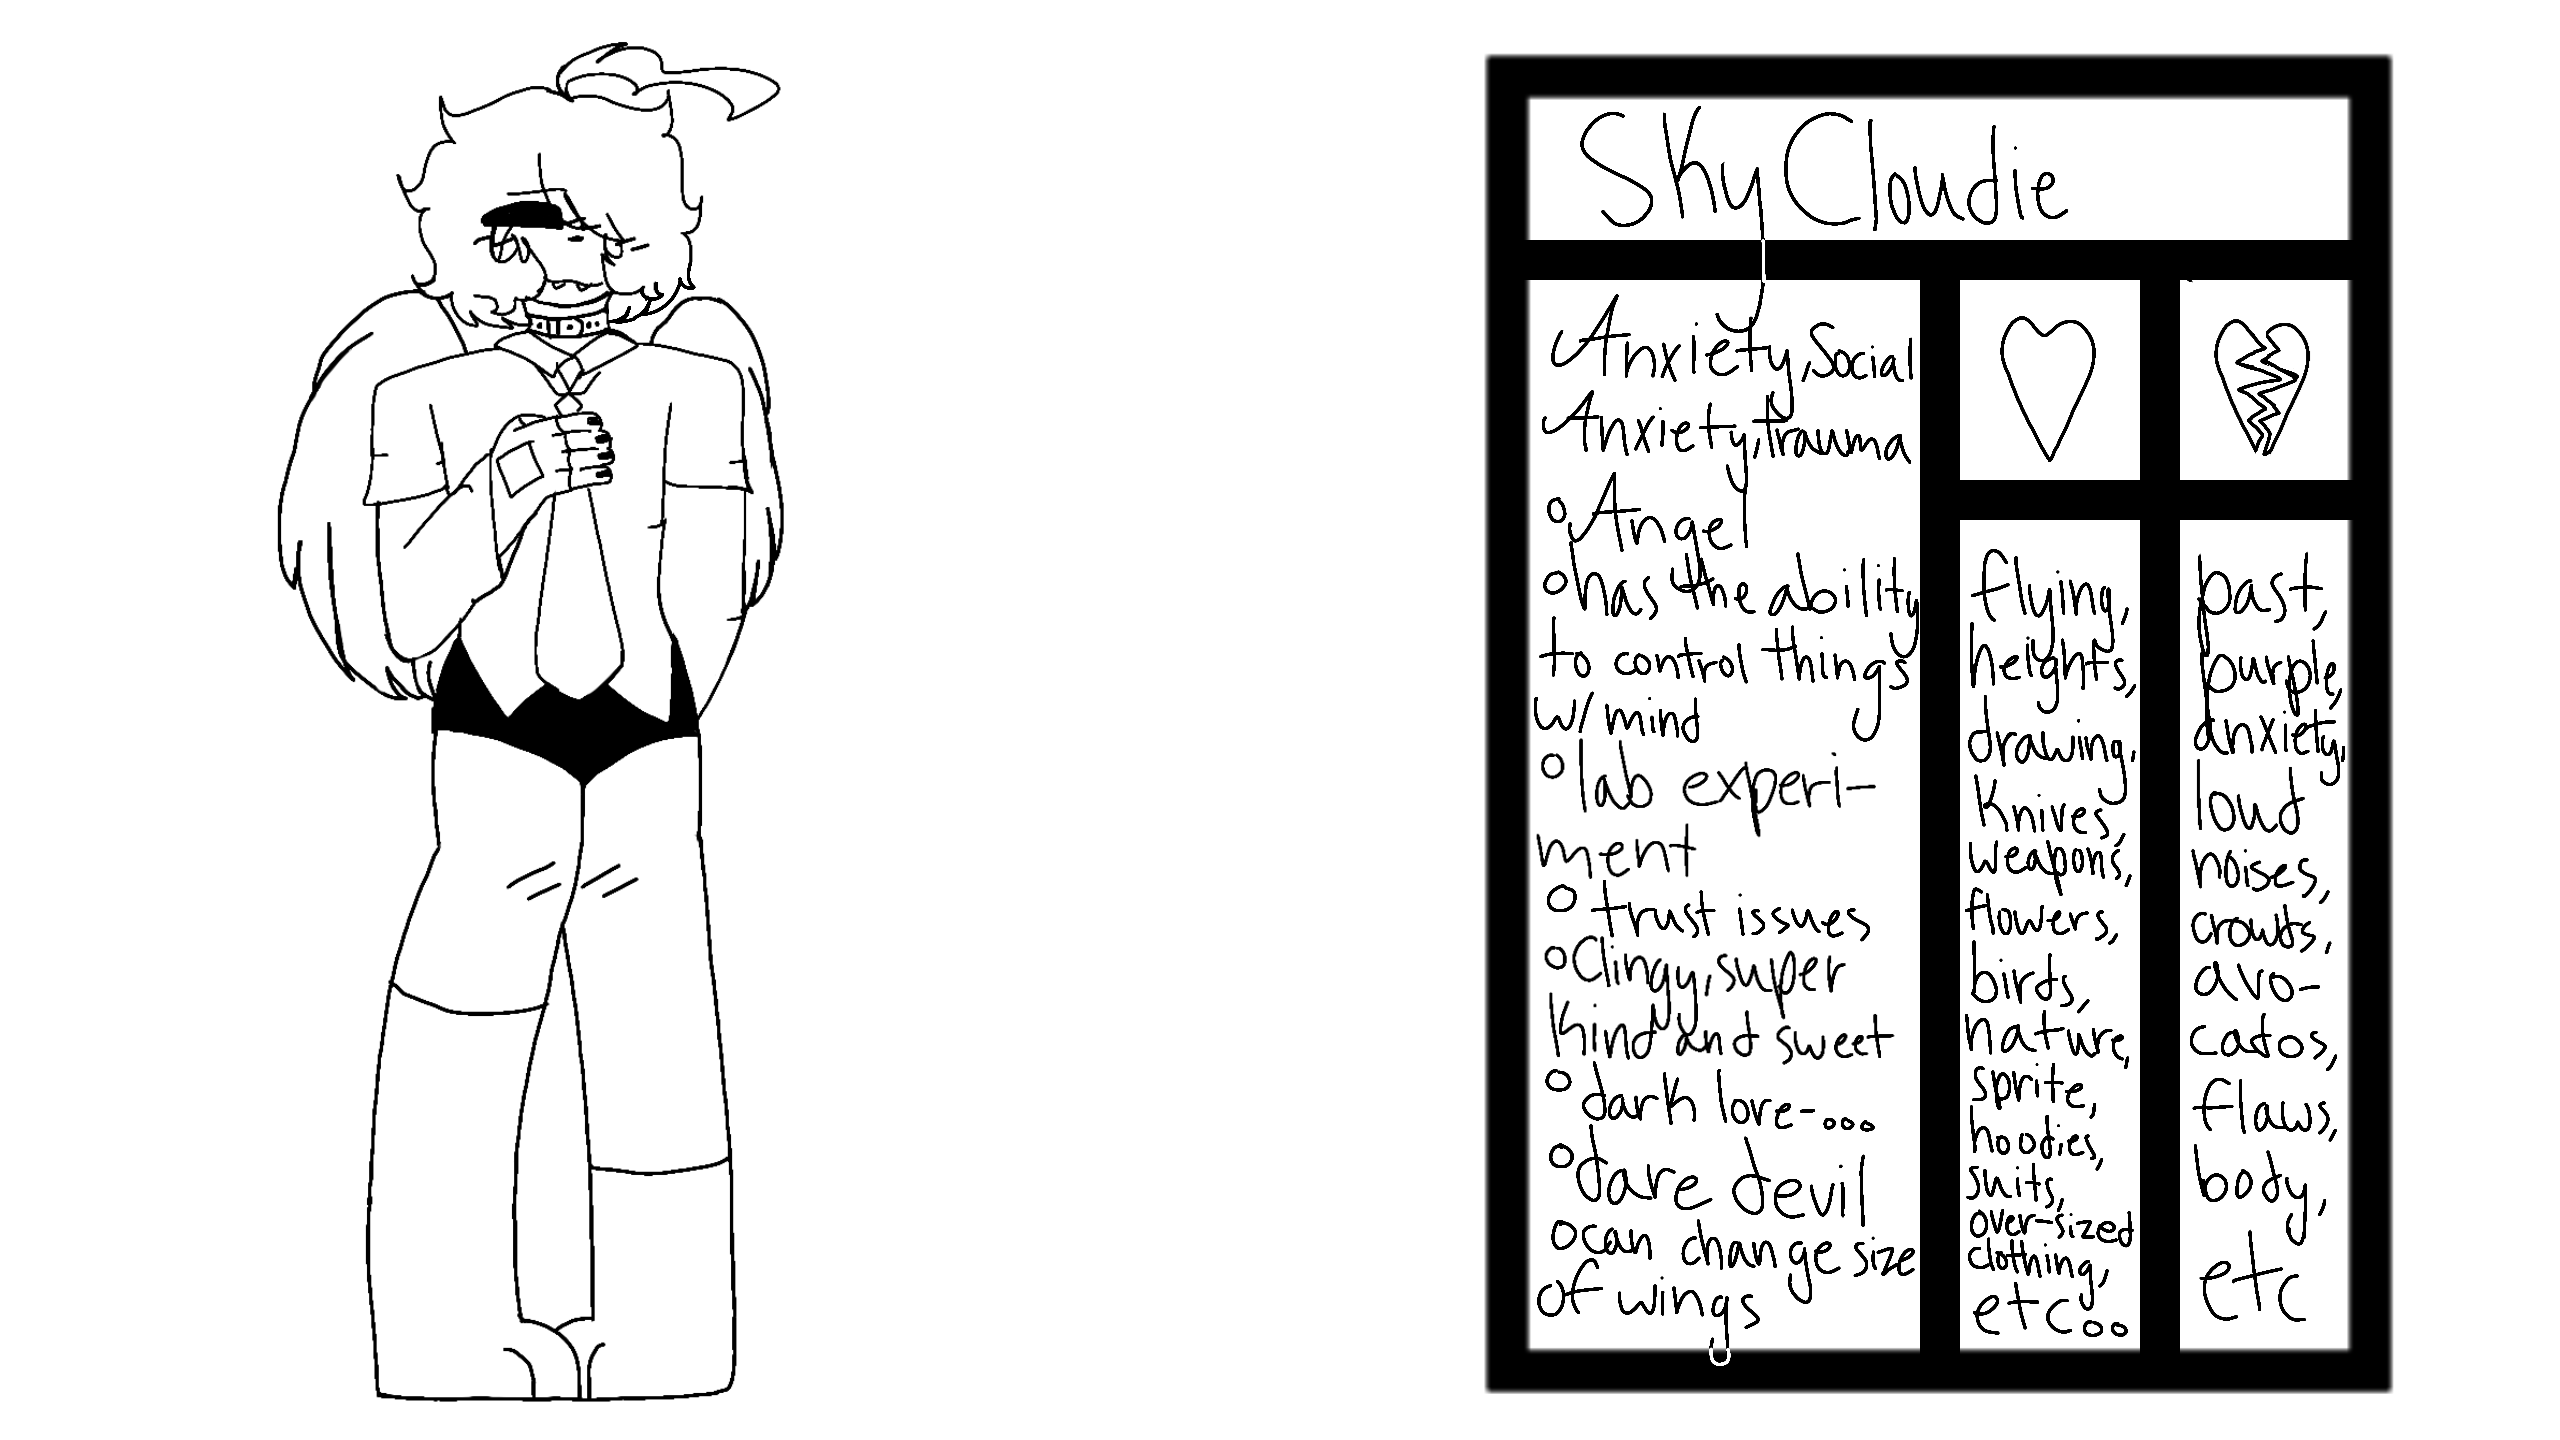 Sky Cloudie
Anxiety, Social
Anxiety, trauma
○ Angel
○ has the ability
to control things
w/ mind
○ lab experi-
ment
○ trust issues
○ Clingy, super
kind and sweet
○ dark lore-...
○ dare devil
○ can change size
of wings
flying,
heights,
drawing,
Knives,
weapons,
flowers,
birds,
nature,
sprite,
hoodies,
suits,
over-sized
clothing,
etc..
past,
purple,
anxiety,
loud
noises,
crowds,
avo-
cados,
flaws,
body,
etc